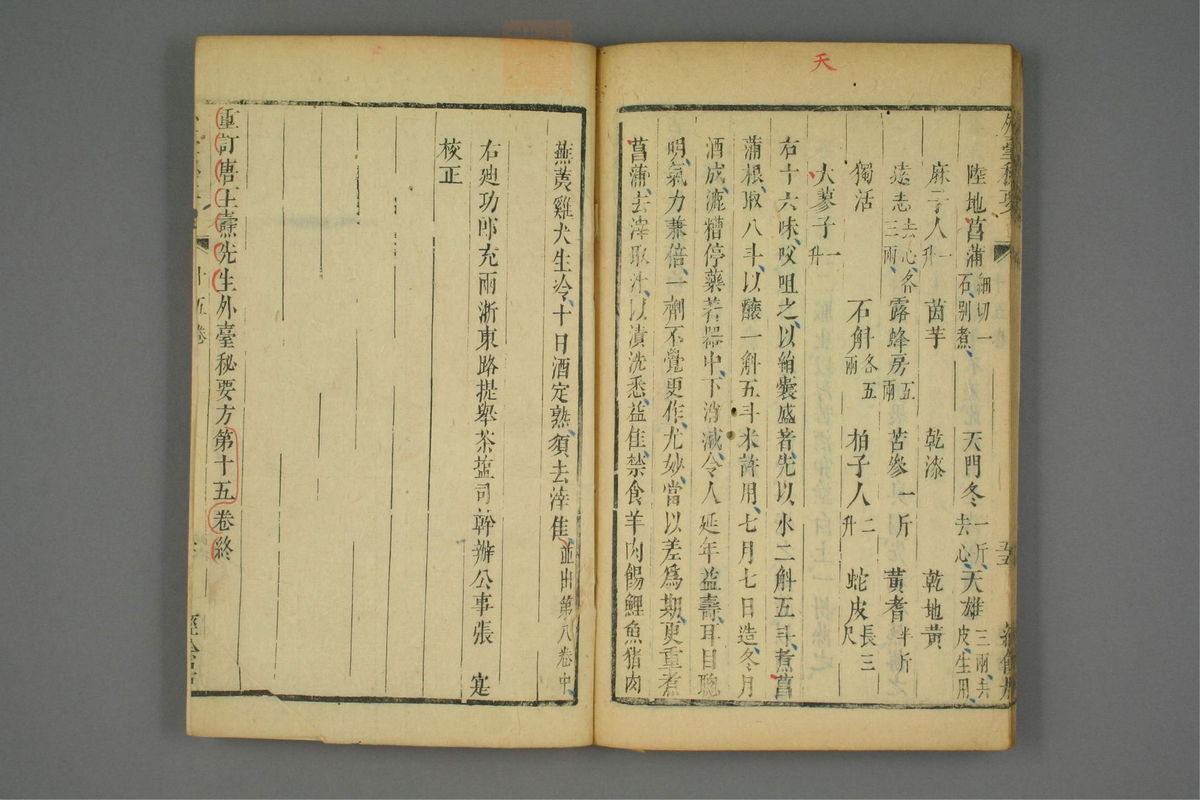 天
外臺秘要
陸地菖蒲細切一石別煮 天門冬一斤去心 天雄三兩去皮生用
麻子人一升 茵芋 乾漆 乾地黃
遠志去心各三兩 露蜂房五兩 苦參一斤 黃耆半斤
獨活 石斛各五兩 柏子人二升 蛇皮長三尺
大蓼子一升
右十六味㕮咀之以絹囊盛著先以水二斛五斗煮菖
蒲根取八斗以釀一斛五斗米許用七月七日造冬月
酒成漉糟停藥著器中下消减令人延年益壽耳目聰
明氣力兼倍一劑不覺更作尤妙當以差為期更重煮
菖蒲去滓取汁以漬洗悉益佳禁食羊肉餳鯉魚猪肉
蕪荑雞犬生冷十日酒定熟須去滓佳並出第八卷中
右廸功郎充兩浙東路提舉茶塩司幹辦公事張 寔
校正
重訂唐王燾先生外臺秘要方第十五卷終
十五卷